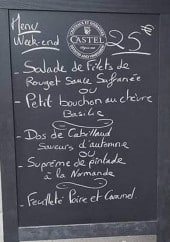 Menu
Week-end
CASTEL
25€
- Salade de Filets de
Rouget Sauce Safranée
ou
- Petit bouchon au chèvre
Basilic
- Dos de Cabillaud
Saveurs d'automne
ou
- Suprême de pintade
à la Normande
- Feuilleté Poire et Caramel